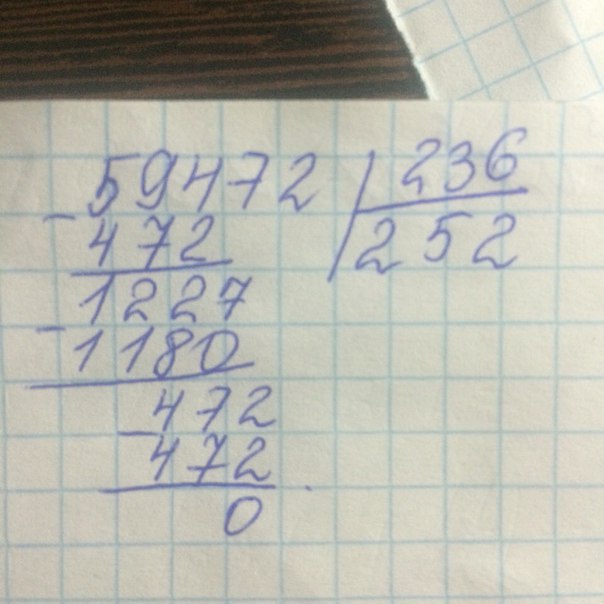 59472 236
- 472 252
1227
- 1180
472
- 472
0